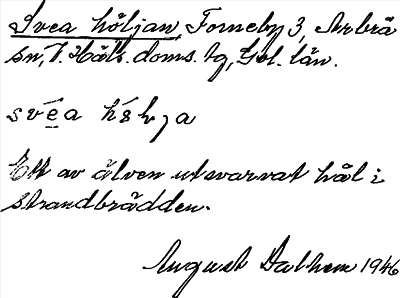 Svea höljan, Forneby 3, Arbrå
sn, V. Häls. doms. tg, Gvl. län.
svéa
Ett av älven utsvarvat hål i
strandbrädden.
August Dalhem 1946